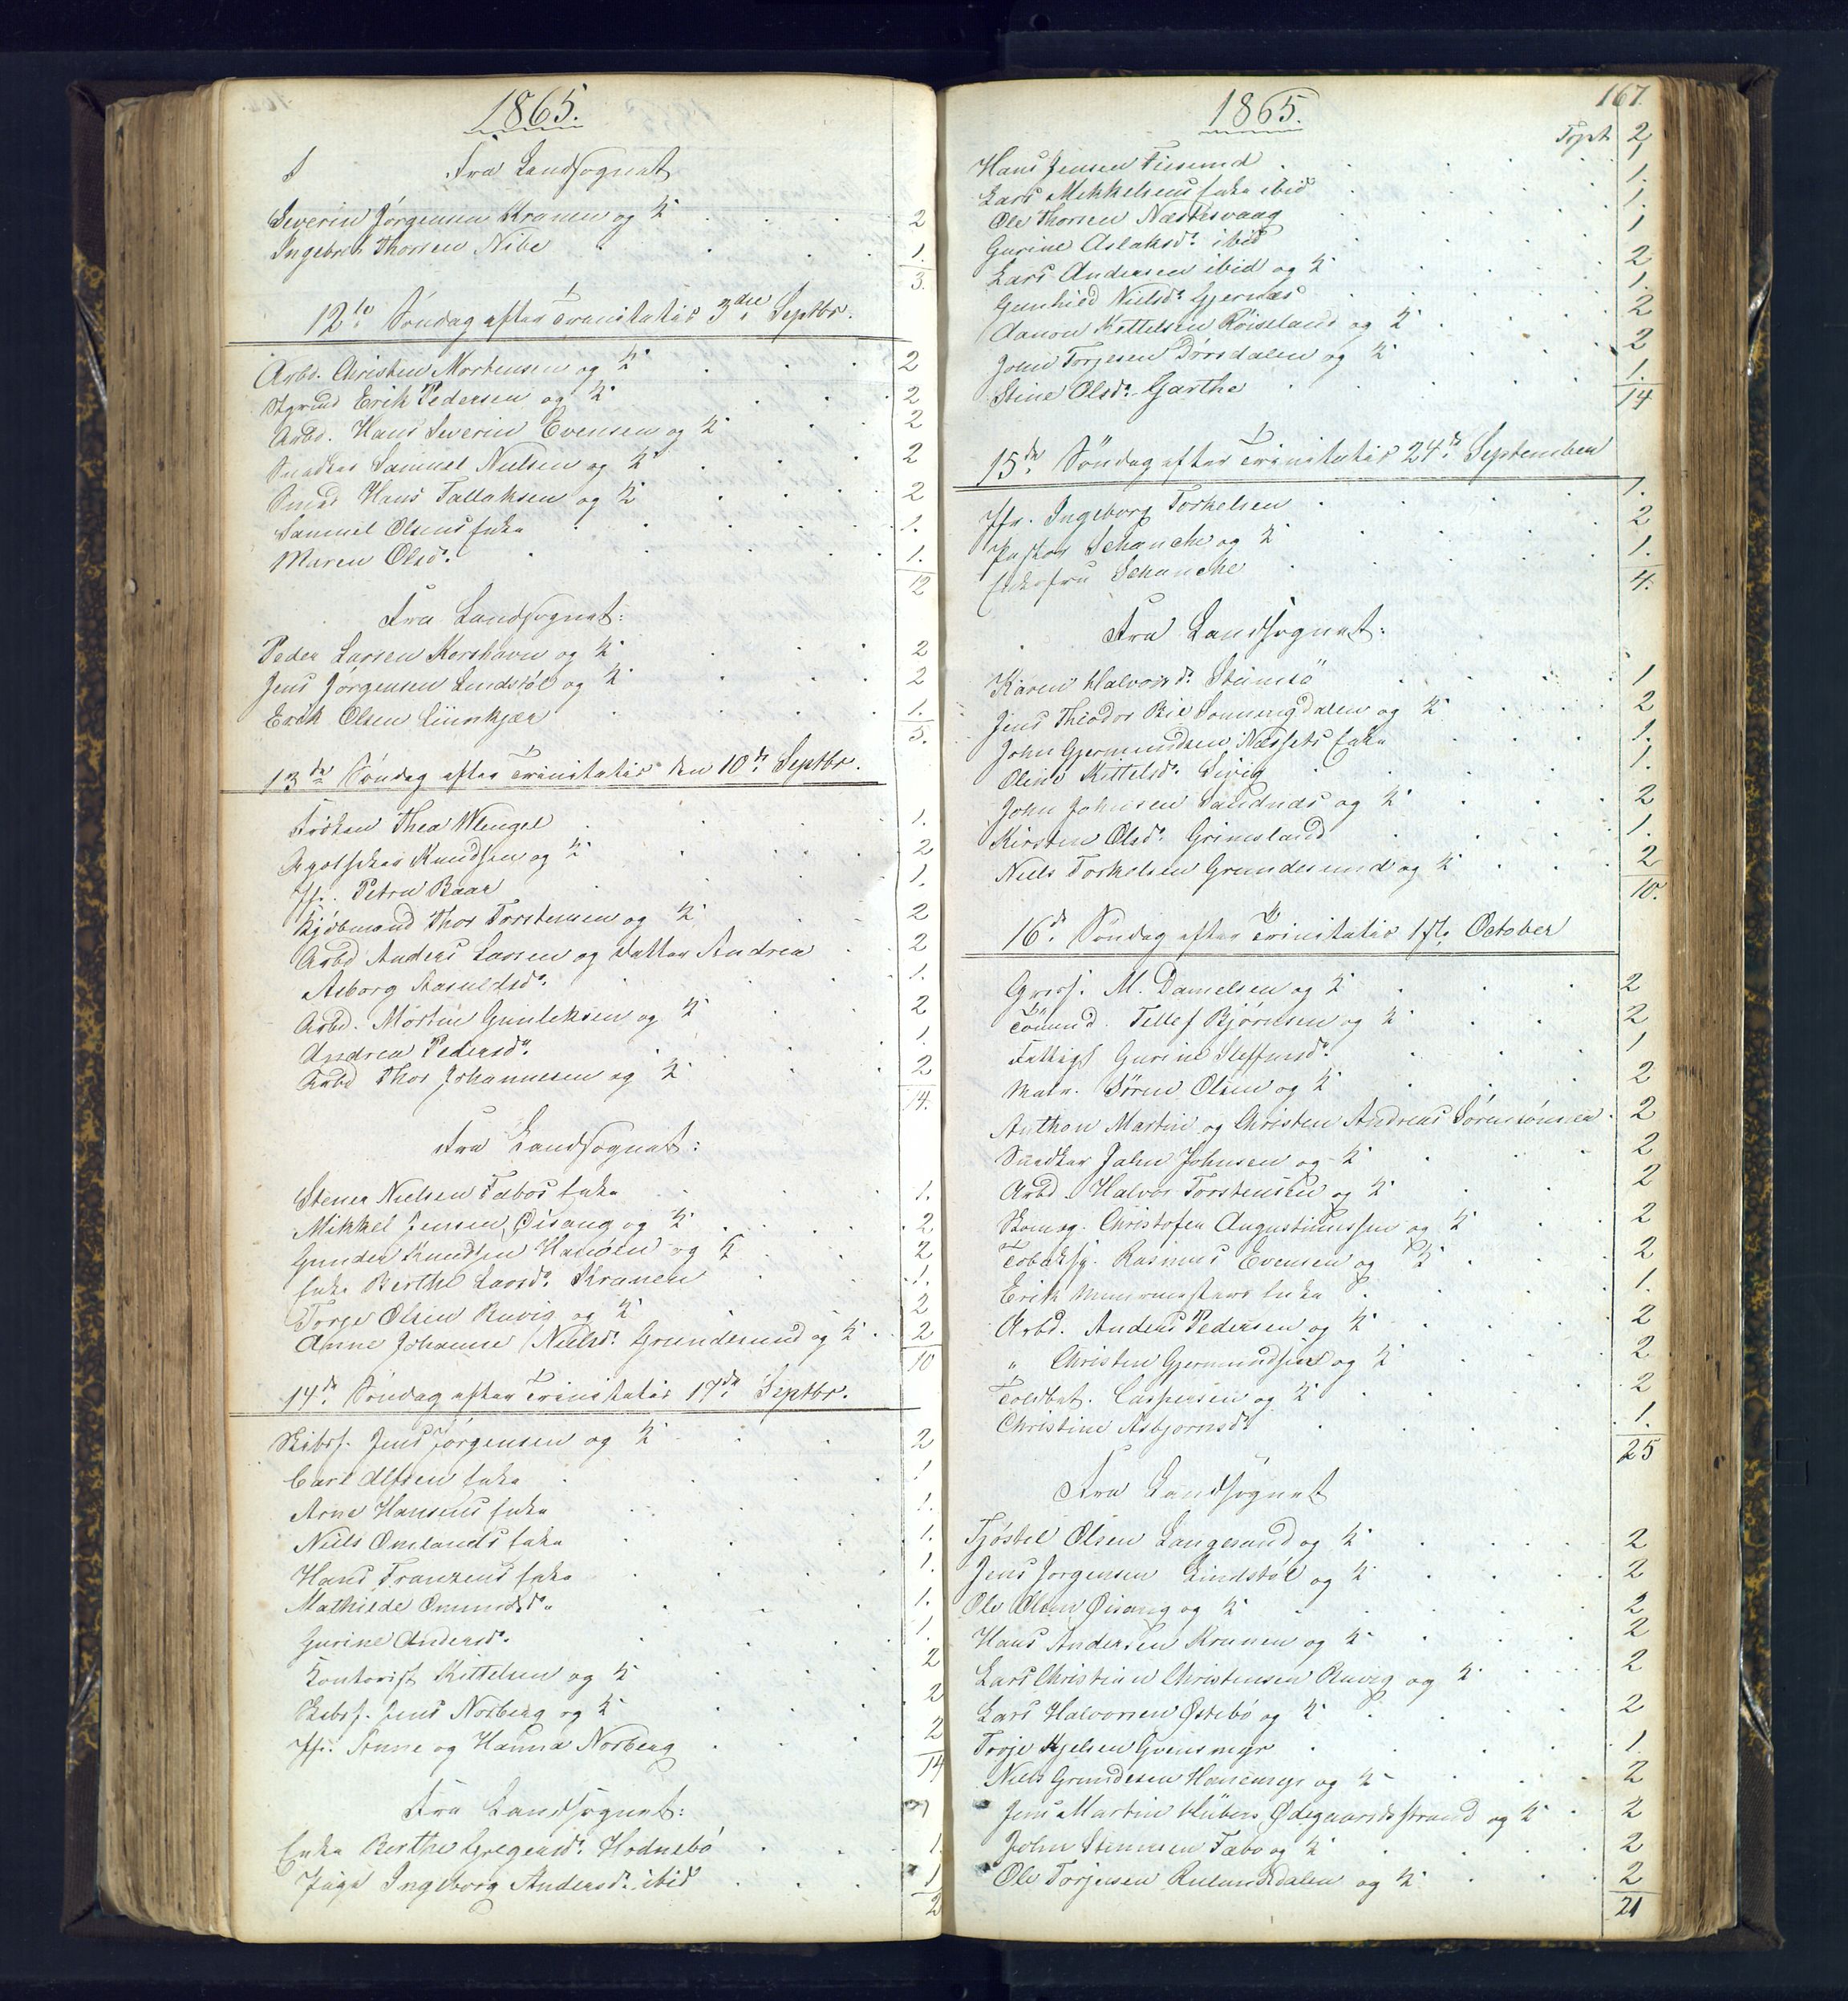 1865.
Fra Landsognet
Severin Jørgensen Kranen og K 2
Ingebret Thorsen Nibe 1.
3.
12te Søndag efter Trinitatis 3die Septbr.
Arbd. Christen Mortensen og K 2
Erik Pedersen og K 2
Arbd. Hans Severin Evensen og K 2
Snedker Samuel Nielsen og K 2
Smed Hans Tallaksen og K 2
Samuel Olsens Enke 1.
Maren Olsd. 1.
12
Fra Landsognet:
Peder Larsen Korshavn og K 2
Jens Jørgensen Lindstøl og K 2
Erik Olsen 1.
5.
13de Søndag efter Trinitatis den 10de Septbr.
Frøken Thea Wengel 1.
Knudsen og K 2
Jfr. Petra Baar 1.
Kjøbmand Thor Torstensen og K 2
Arbd Anders Larsen og Datter Andrea 2
Asborg 1.
Arbd. Morten Gunleksen og K 2
Andrea Pedersd. 1.
Arbd Thor Johannesen og K 2
14.
Fra Landsognet:
Stener Nielsen Fabos Enke 1.
Mikkel Jensen Øisang og K 2
Gunder Knudsen Hanøen og K 2
Enke Berthe Larsd. Kranen 1.
Torje Olsen Ruvig og K 2
Anne Johanne Nielsd. Grundesund og K 2
10
14de Søndag efter Trinitatis 17de Septbr.
Skibsf. Jens Jørgensen og K 2
Carl Alfsen Enke 1
Arne Hansens Enke 1.
Niels Omlands Enke 1.
Hans Franzens Enke 1.
Mathilde Omundsd. 1.
Gurine Andersd. 1.
Kontorist Kittelsen og K 2
Skibsf. Jens Norberg og K 2
Jfr. Anne og Hanna Norberg 2
14
Fra Landsognet:
Enke Berthe Gregersd. Hodnebø 1.
Pige Ingeborg Andersd. ibid 1
2
1865.
167.
Tspt. 2
Hans Jensen 1
Lars Mikkelsens Enke ibid 1.
Ole Thorsen Næskesvaag 1.
Gurine Aslaksd. ibid 1
Lars Andersen ibid og K 2
Gunhild Nielsd. Gjernes 1.
Aanon Kittelsen Røiseland og K 2
John Torjesen Dørsdalen og K 2
Stine Olsd. Garthe 1.
14
15de Søndag efter Trinitatis 24de September
Jfr. Ingeborg Torkelsen 1.
Pastor Schanche og K 2
Enkefru Schanche 1.
4.
Fra Landsognet:
Karen Halvorsd. Stumsø 1
Jens Theodor Bie Sonningdalen og K 2
John Gjermundsen Næssets Enke 1.
Oline Kittelsd. Sivig 1.
John Johnsen Sandnæs og K 2
Kirsten Olsd. Grimsland 1.
Niels Torkelsen Grundesund og K 2
10.
16de Søndag efter Trinitatis 1ste October
M. Danielsen og K 2
Tellef Bjørnsen og K 2
Fattigl Gurine Steffensd. 1
Matr. Søren Olsen og K 2
Anthon Martin og Christen Andreas Sørensønner 2
Snedker Jahn Johnsen og K 2
Arbd. Halvor Torstensen og K 2
Skomag. Christofer Augustinussen og K 2
Tobaksf. Rasmus Evensen og K 2
Erik Muurmesters Enke 1.
Arbd. Anders Pedersen og K 2
" Christen Gjermundsen og K 2
Toldbet. Caspersen og K 2
Christine Asbjørnsd. 1.
25
Fra Landsognet
Tjøstel Olsen Langesund og K 2
Jens Jørgensen Lindstøl og K 2
Ole Olsen Øisang og K 2
Hans Andersen Kranen og K 2
Lars Christian Christensen Ruvig og K 2
Lars Halvorsen Østebø og K 2
Torje 1.
Niels Grundesen Hanemyr og K 2
Jens Martin Hübert Ødegaardsstrand og K 2
John Stensen Fabo og K 2
Ole Torjesen og K 2
21